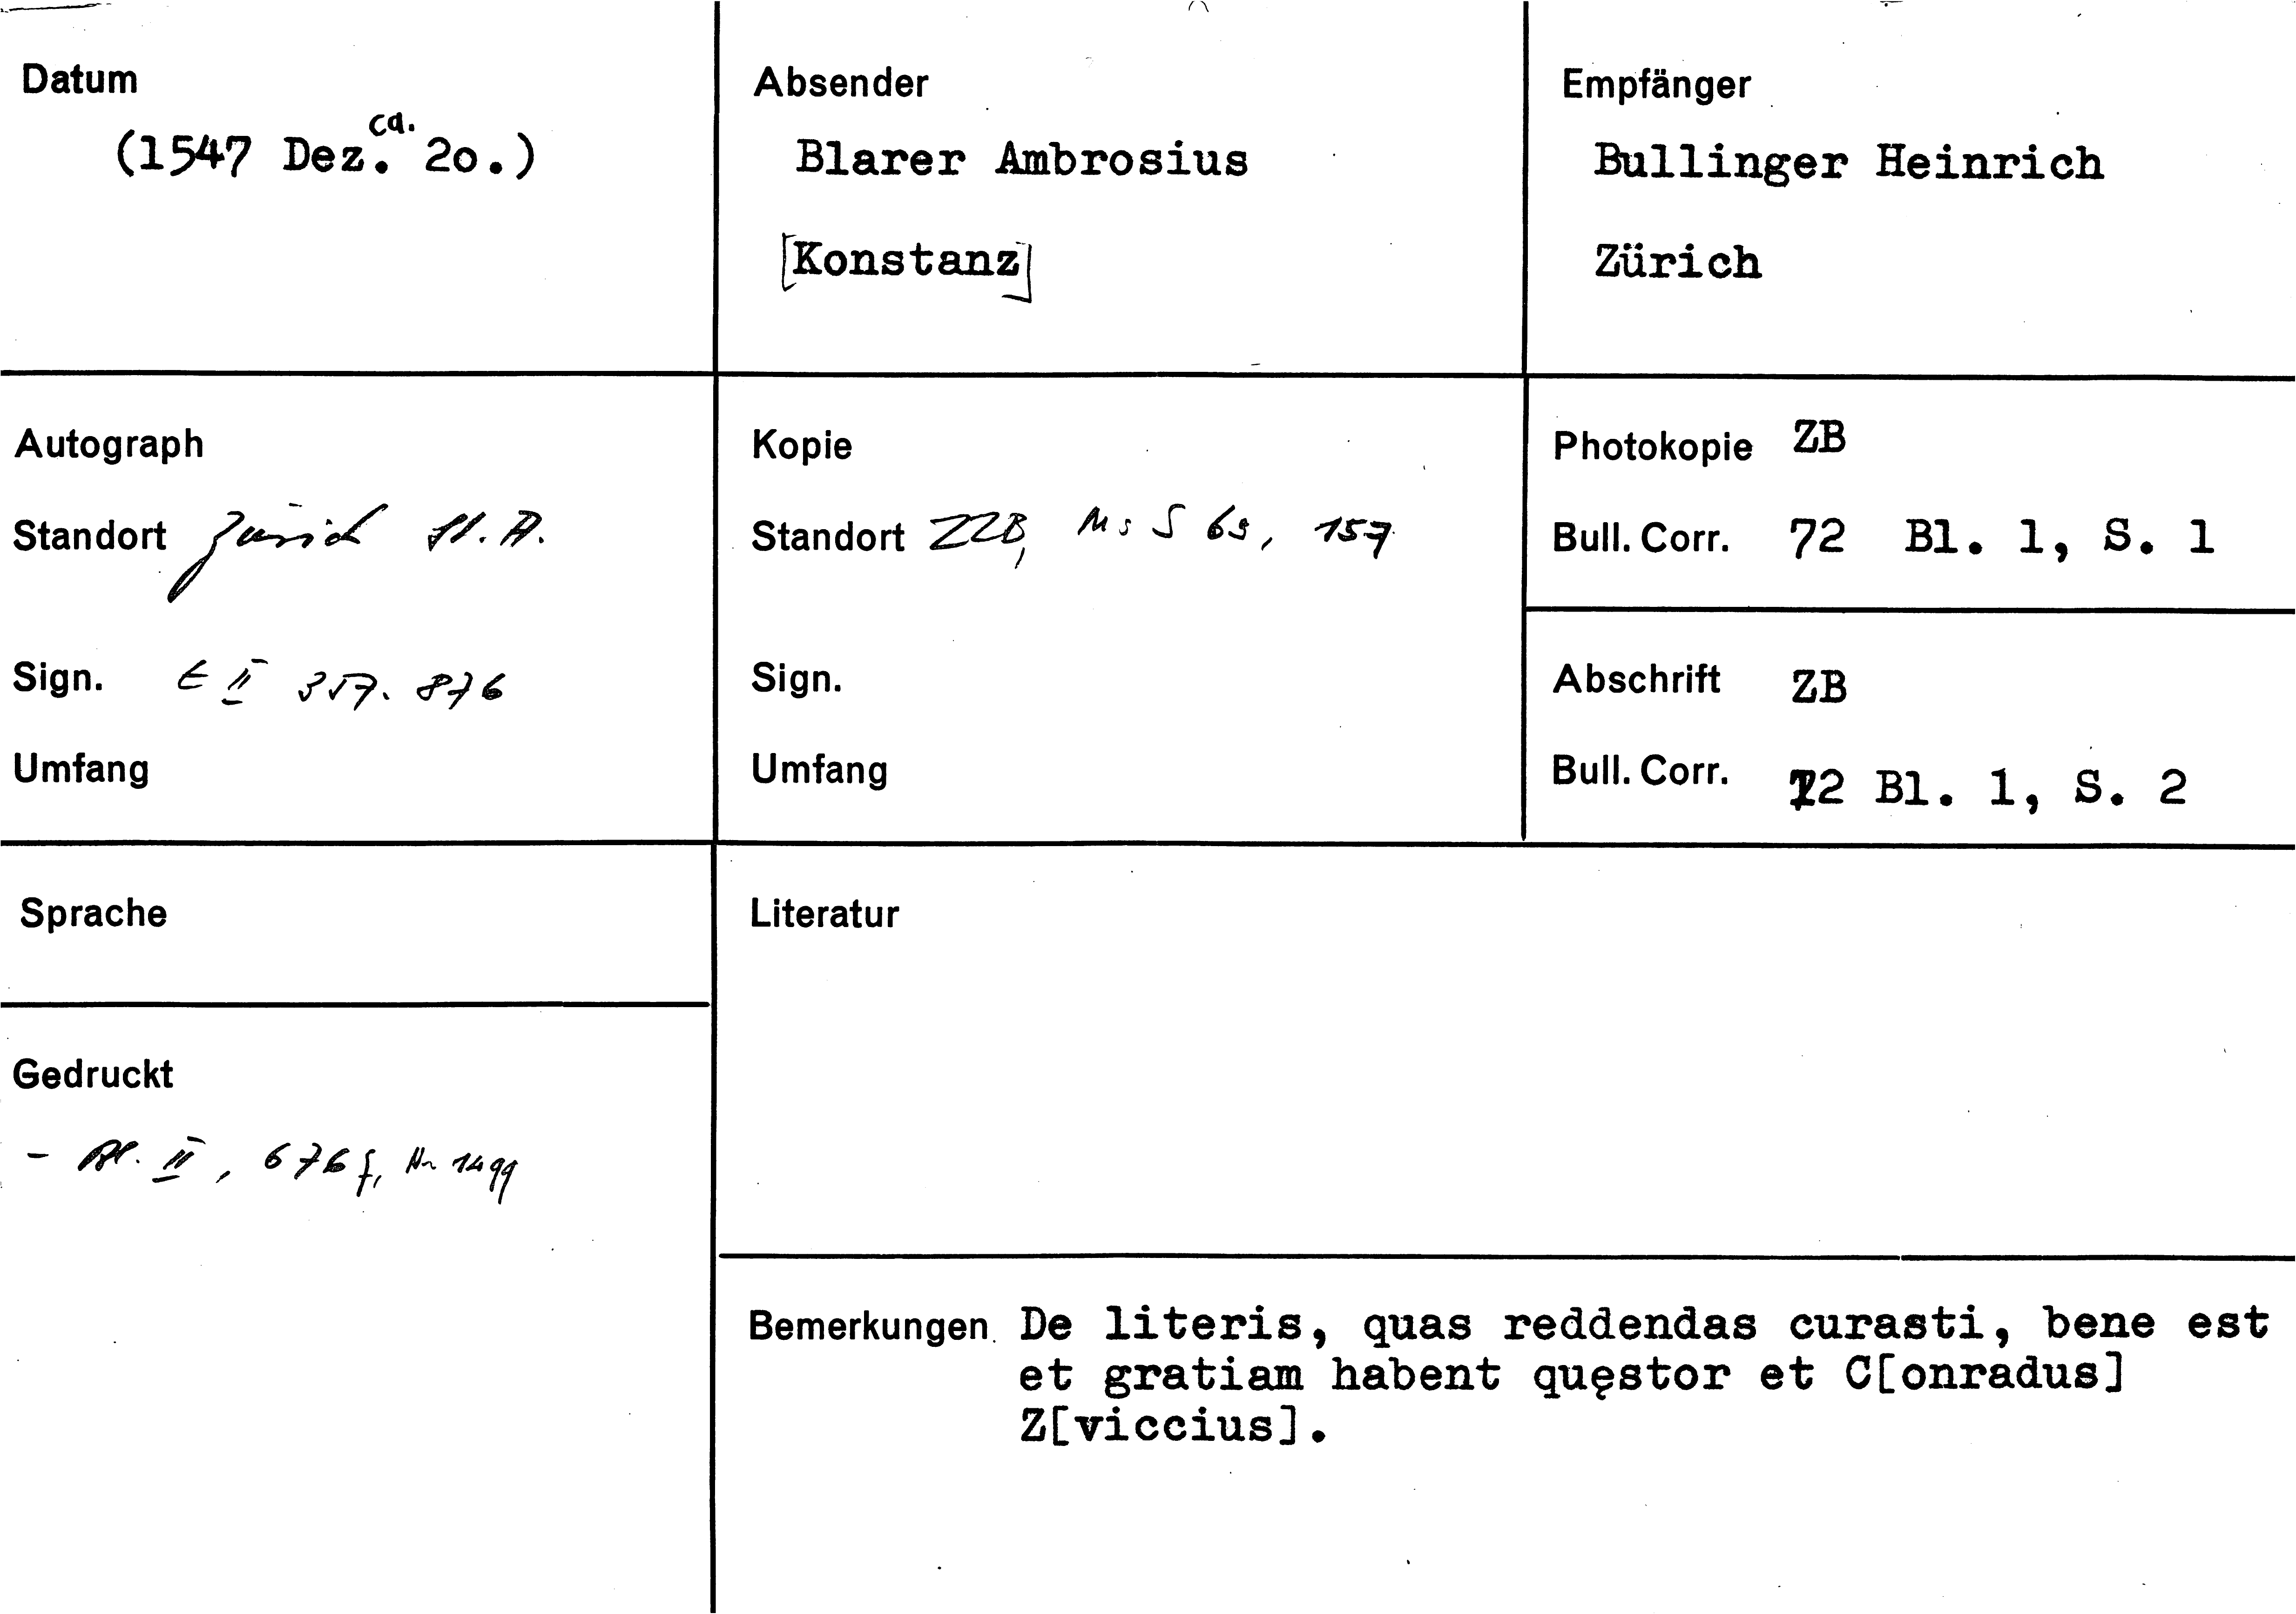 Datum
(1547 Dez. ca. 2o.)
Absender
Blarer Ambrosius
[Konstanz]
Empfänger
Bullinger Heinrich
Zürich
Autograph
Standort Zürich St. A.
Sign. E II 357. 876
Umfang
Kopie
Standort ZZB, Ms S 69, 157
Sign.
Umfang
Photokopie ZB
Bull. Corr. 72 Bl. 1, S. 1
Abschrift ZB
Bull. Corr. 72 Bl. 1, S. 2
Sprache
Gedruckt
- Bl. II, 676 f, Nr 1499
Literatur
Bemerkungen De literis, quas reddendas curasti, bene est
et gratiam habent quęstor et C[onradus]
Z[viccius].